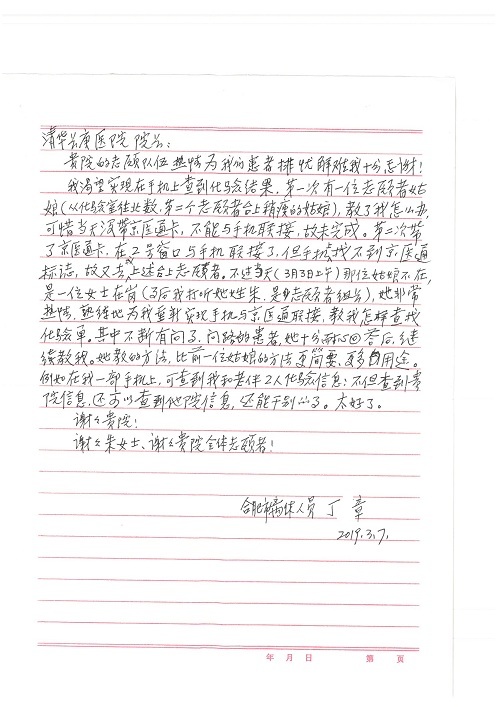 清华长庚医院 院长：
贵院的志愿队伍热情为我们患者排忧解难我十分感谢！
我渴望实现在手机上查到化验结果，第一次有一位志愿者姑
娘(从化验室往北数，第二个志愿者台上稍瘦的姑娘)，教了我怎么办，
可惜当天没带京医通卡，不能与手机联接，故未完成。第二次带
了京医通卡，在2号窗口与手机联接了，但手机找不到京医通
标志，故又去上述台上志愿者。不过当天(3月3日上午)那位姑娘不在，
是一位女士在岗(马后我打听她姓朱，是志愿者组长)，她非常
热情，熟练地为我重新实现手机与京医通联接，教我怎样查找
化验单。其中不断有问了、问路的患者，她十分耐心回答后，继
续教我。她教的方法，比前一位姑娘的方法更简要、更多用途。
例如在我一部手机上，可查到我和老伴2人化验信息；不但查到贵
院信息，还可以查到他院信息，还能干别的了。太好了。
谢谢贵院！
谢谢朱女士、谢谢贵院全体志愿者！
合肥市离休人员 丁 章
2019.3.7.
年 月 日 第 页